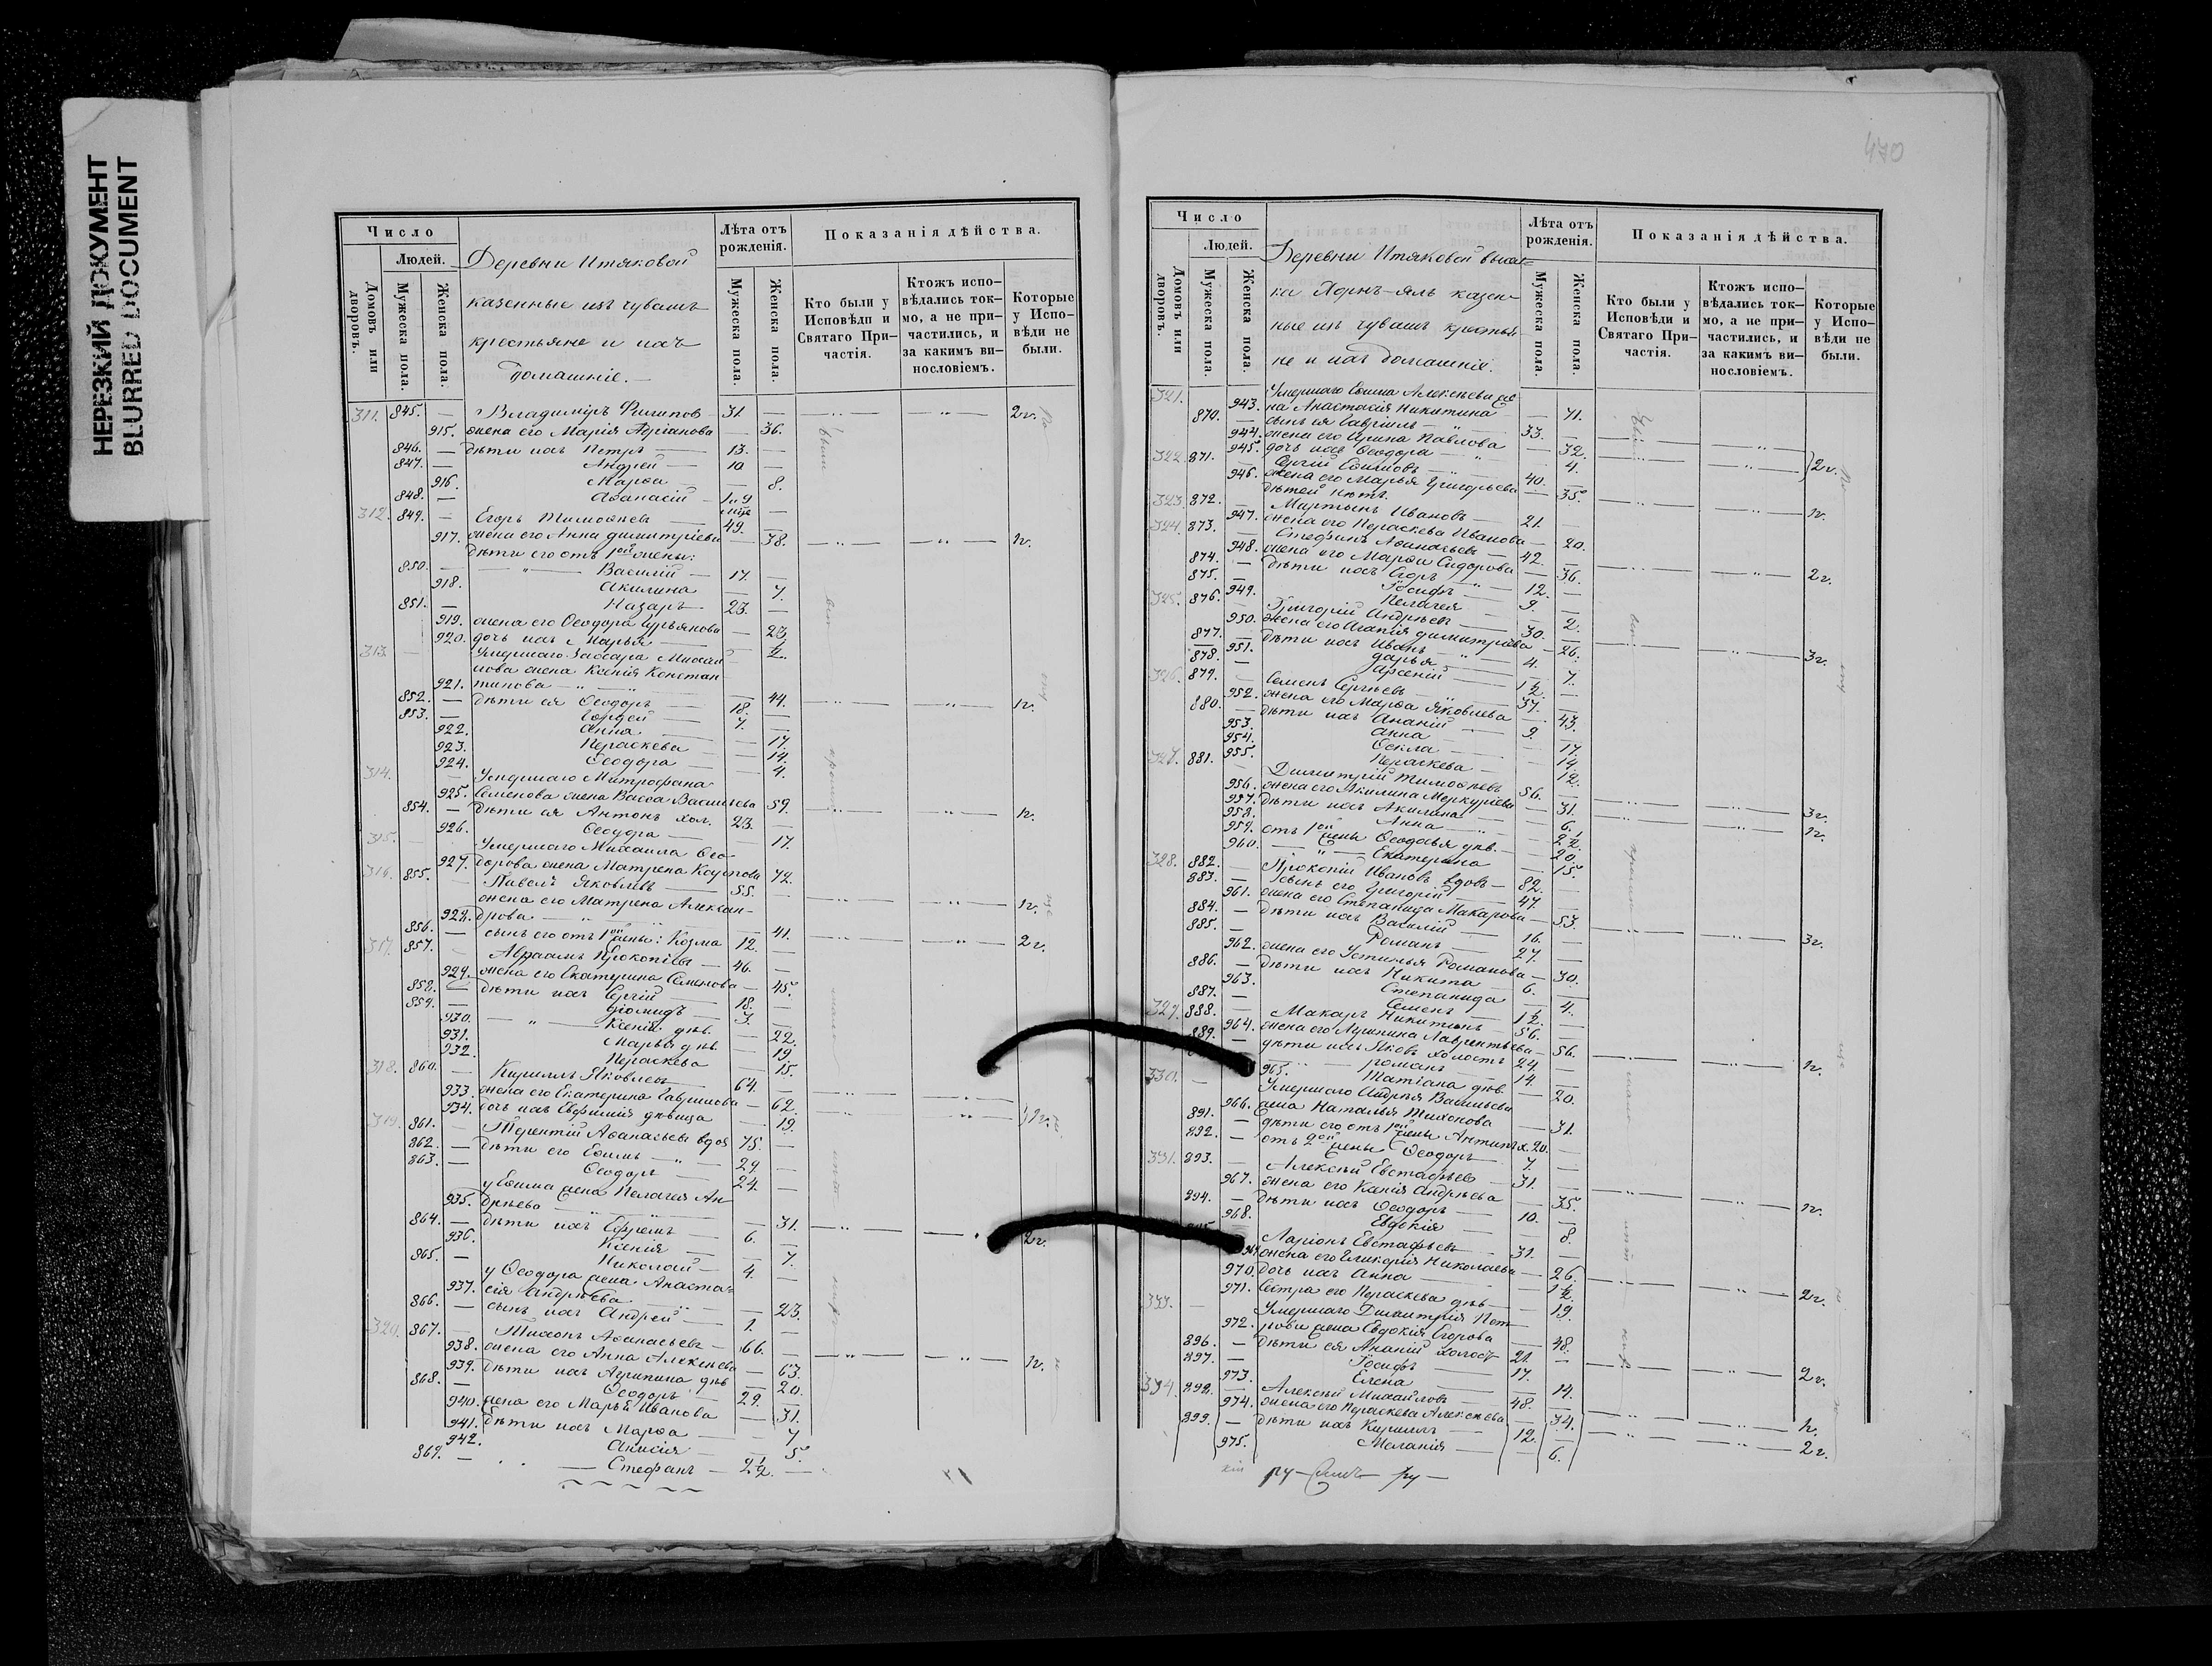 НЕРЕЗКИЙ ДОКУМЕНТ
BLURRED DOCUMENT
Число
Людей.
Домовъ или дворовъ.
Мужеска пола.
Женска пола.
Деревни Итяковой
казенные изъ чувашъ
крестьяне и ихъ
домашніе.
Лѣта отъ рожденія.
Мужеска пола.
Женска пола.
Показанія дѣйства.
Кто были у Исповѣди и Святаго Причастія.
Ктожъ исповѣдались токмо, а не причастились, и за какимъ винословіемъ.
Которые у Исповѣди не были.
311. 845. — Владиміръ Филиповъ — 31. — 2 г.
915. жена его Марія Адріанова — 36.
846. — дѣти ихъ Петръ — 13. —
847. — Андрей — 10 —
916. Марѳа — 8.
848. — Аѳанасій —
312. 849. — Егоръ Тимоѳеевъ — 49. —
917. жена его Анна Димитріева — 38. 1 г.
дѣти его отъ 1ой жены:
850. — Василій — 17. —
918. Акилина — 7.
851. — Назаръ — 23. —
919. жена его Ѳеодора Гурьянова — 23.
920. дочь ихъ Марья — ½.
313. Умершаго Захара Михаи
лова жена Ксенія Констан
921. тинова — 44. 1 г.
852. — дѣти ея Ѳеодоръ — 18. —
853. — Гордей — 7. —
922. Анна — 17.
923. Параскева — 14.
924. Ѳеодора — 4.
314. Умершаго Митрофана
925. Семенова жена Васса Васильева 59. 1 г.
854. — дѣти ея Антонъ хол. 23. —
926. Ѳеодора — 17.
315. Умершаго Михаила Ѳео
927. дорова жена Матрена Карпова 72.
316. 855. — Павелъ Яковлевъ — 55. — 1 г.
жена его Матрена Алексан-
928. дрова — 41.
856. — сынъ его отъ 1ой жены: Козма 12. — 2 г.
317. 857. — Авраамъ Прокопіевъ — 46. —
929. жена его Екатерина Семенова — 45.
858. — дѣти ихъ Сергій — 18. —
859. — Діомидъ — 3. —
930. Ксенія дѣв. — 22.
931. Марья дѣв. — 19.
932. Параскева — 15.
318. 860. — Кириллъ Яковлевъ — 64. —
933. жена его Екатерина Гаврилова — 62.
934. дочь ихъ Евфимія дѣвица — 19.
319. 861. — Терентій Аѳанасьевъ вдов 75. —
862. — дѣти его Ефимъ — 29. —
863. — Ѳеодоръ — 24. —
у Ефима жена Пелагея Ан
935. дреева — 31.
864. — дѣти ихъ Ефремъ — 6. — 2 г.
936. Ксенія — 7.
865. — Николай — 4. —
у Ѳеодора жена Анаста-
937. сія Андреева — 23.
866. — сынъ ихъ Андрей — 1. —
320. 867. — Тихонъ Аѳанасьевъ — 66. — 1 г.
938. жена его Анна Алексеева — 63.
939. дѣти ихъ Агрипина дѣв. — 20.
868. — Ѳеодоръ — 29. —
940. жена его Марья Иванова — 31.
941. дѣти ихъ Марѳа — 7
942. Анисія — 5.
869. — Стефанъ — 2½. —
470
Число
Людей.
Домовъ или дворовъ.
Мужеска пола.
Женска пола.
Деревни Итяковой высел-
ка Хорнъ-яль казен-
ные изъ чувашъ крестья
не и ихъ домашніе.
Лѣта отъ рожденія.
Мужеска пола.
Женска пола.
Показанія дѣйства.
Кто были у Исповѣди и Святаго Причастія.
Ктожъ исповѣдались токмо, а не причастились, и за какимъ винословіемъ.
Которые у Исповѣди не были.
321. Умершаго Ефима Алексѣева же
943. на Анастасія Никитина — 71.
870. — сынъ ея Гавріилъ — 33. —
944. жена его Ирина Павлова — 32.
945. дочь ихъ Ѳеодора — 4.
322. 871. — Сергій Ефимовъ — 40. — 2 г.
946. жена его Марья Григорьева — 35.
дѣтей нѣтъ.
323. 872. — Мартынъ Ивановъ — 21. — 1 г.
947. жена его Параскева Иванова — 20.
324. 873. — Стефанъ Аѳанасьевъ — 42. —
948. жена его Марѳа Сидорова — 36. 2 г.
874. — дѣти ихъ Егоръ — 12. —
875. — Іосифъ — 9. —
949. Пелагея — 2.
325. 876. — Григорій Андреевъ — 30. —
950. жена его Агапія Димитріева — 26. 3 г.
877. — дѣти ихъ Иванъ — 4. —
951. Дарья — 7.
878. — Арсеній — 1½. —
326. 879. — Семенъ Сергѣевъ — 37. —
952. жена его Марѳа Яковлева — 43.
880. — дѣти ихъ Ананій — 9. —
953. Анна — 17.
954. Ѳекла — 14.
955. Параскева — 12.
327. 881. — Димитрій Тимоѳеевъ 56. — 3 г.
956. жена его Акилина Меркуріева — 31. 1 г.
957. дѣти ихъ Акилина — 6.
958. Анна — 2½.
959. отъ 1ой жены Ѳеодосья дѣв. — 20.
960. Екатерина — 15.
328. 882. — Прокопій Ивановъ вдовъ — 82. —
883. — сынъ его Григорій — 47. —
961. жена его Степанида Макарова — 53. 3 г.
884. — дѣти ихъ Василій — 16. —
885. — Романъ — 27. —
962. жена его Устинья Романова — 30.
886. — дѣти ихъ Никита — 6. —
963. Степанида — 4.
887. — Семенъ — 1½. —
329. 888. — Макаръ Никитинъ — 56. —
964. жена его Агрипина Лаврентьева — 56. 1 г.
889. — дѣти ихъ Яковъ холостъ 24. —
Романъ — 14. —
965. Татіана дѣв. — 20.
330. Умершаго Андрея Васильева
966. жена Наталья Тихонова — 31.
891. — дѣти его отъ 1ой жены Антипъ х. 20. —
892. — отъ 2ой жены Ѳеодоръ — 7. —
331. 893. — Алексѣй Евстафьевъ — 31. —
967. жена его Ксенія Андреева — 35. 1 г.
894. — дѣти ихъ Ѳеодоръ — 10. —
968. Евдокія — 8.
Ларіонъ Евстафьевъ — 31. —
жена его Гликерія Николаева — 26.
970. дочь ихъ Анна — 1½. 2 г.
971. сестра его Параскева дѣв. — 19.
333. Умершаго Димитрія Пет
972. рова жена Евдокія Егорова — 48.
896. — дѣти ея Ананій холост. 21. — 2 г.
897. — Іосифъ — 17. —
973. Елена — 14.
334. 898. — Алексѣй Михайловъ — 48. —
974. жена его Параскева Алексѣева — 34. 1 г.
899. — дѣти ихъ Кириллъ — 12. — 2 г.
975. Меланія — 6.